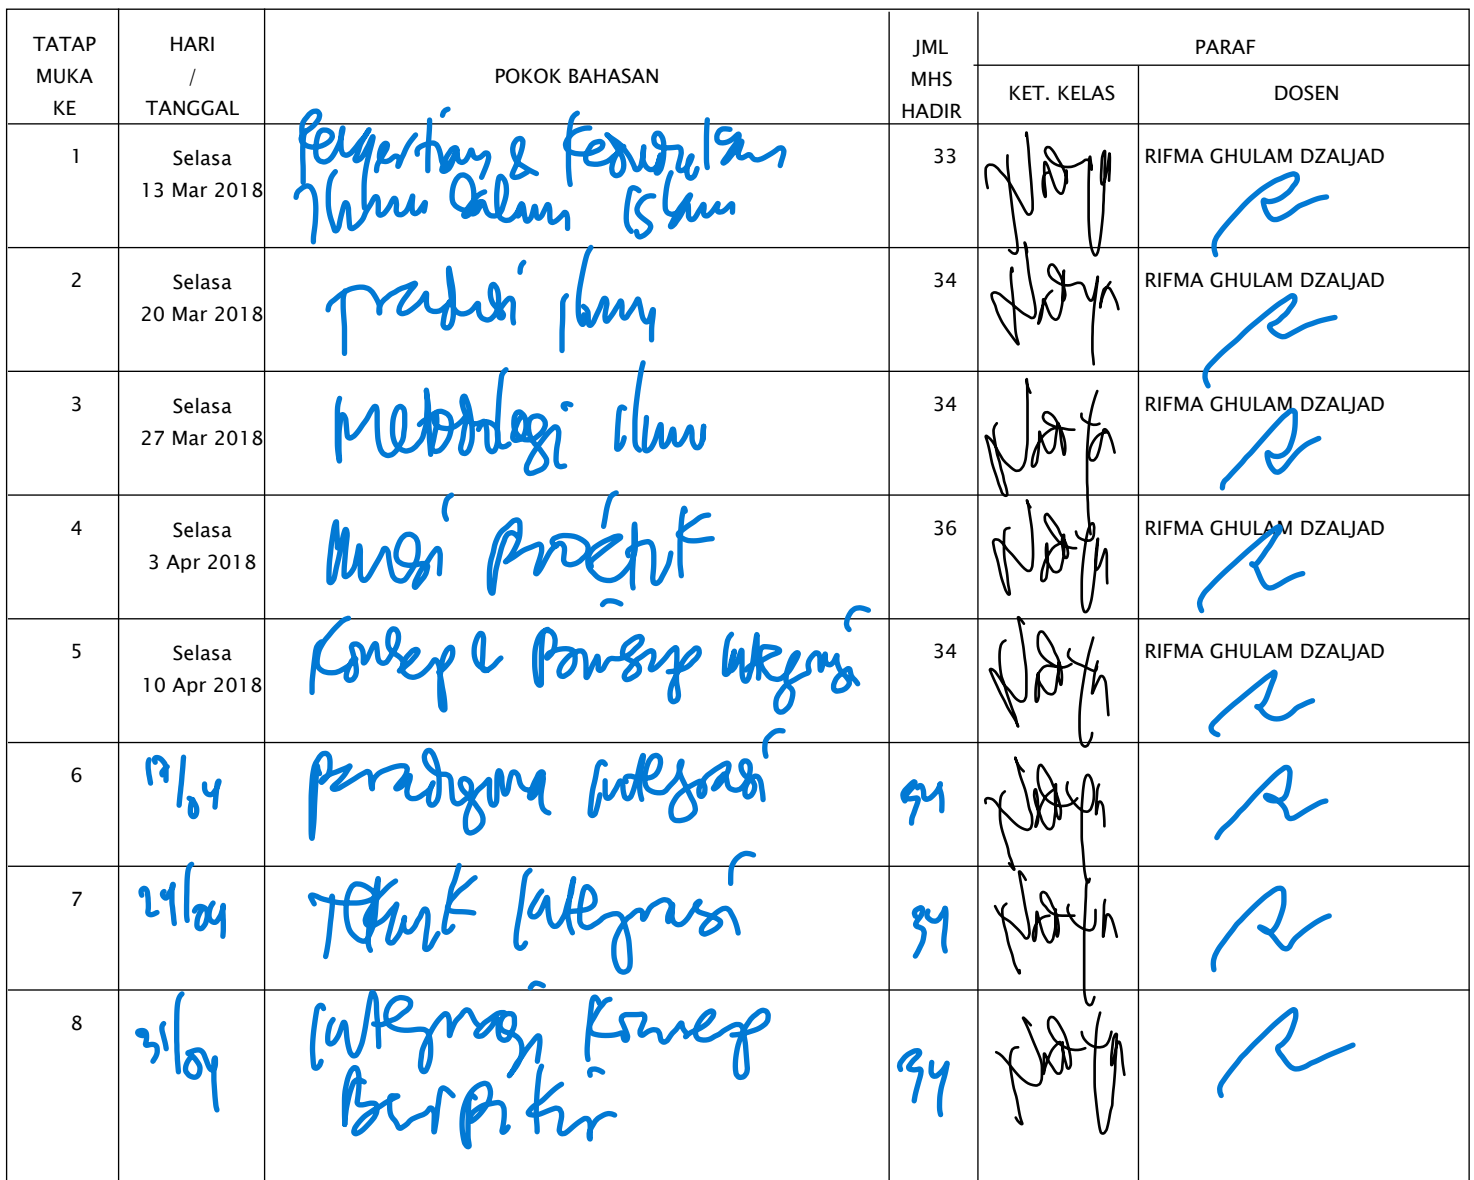 TATAP MUKA KE
HARI / TANGGAL
POKOK BAHASAN
JML MHS HADIR
PARAF
KET. KELAS
DOSEN
1
Selasa
13 Mar 2018
Pengertian & Kedudukan
Ilmu Dalam Islam
33
RIFMA GHULAM DZALJAD
2
Selasa
20 Mar 2018
Tradisi Ilmu
34
RIFMA GHULAM DZALJAD
3
Selasa
27 Mar 2018
Metodologi Ilmu
34
RIFMA GHULAM DZALJAD
4
Selasa
3 Apr 2018
36
RIFMA GHULAM DZALJAD
5
Selasa
10 Apr 2018
Konsep & Prinsip Integrasi
34
RIFMA GHULAM DZALJAD
6
17/04
Paradigma Integrasi
34
7
24/04
Teknik Integrasi
34
8
31/04
Integrasi Konsep
Berpikir
34